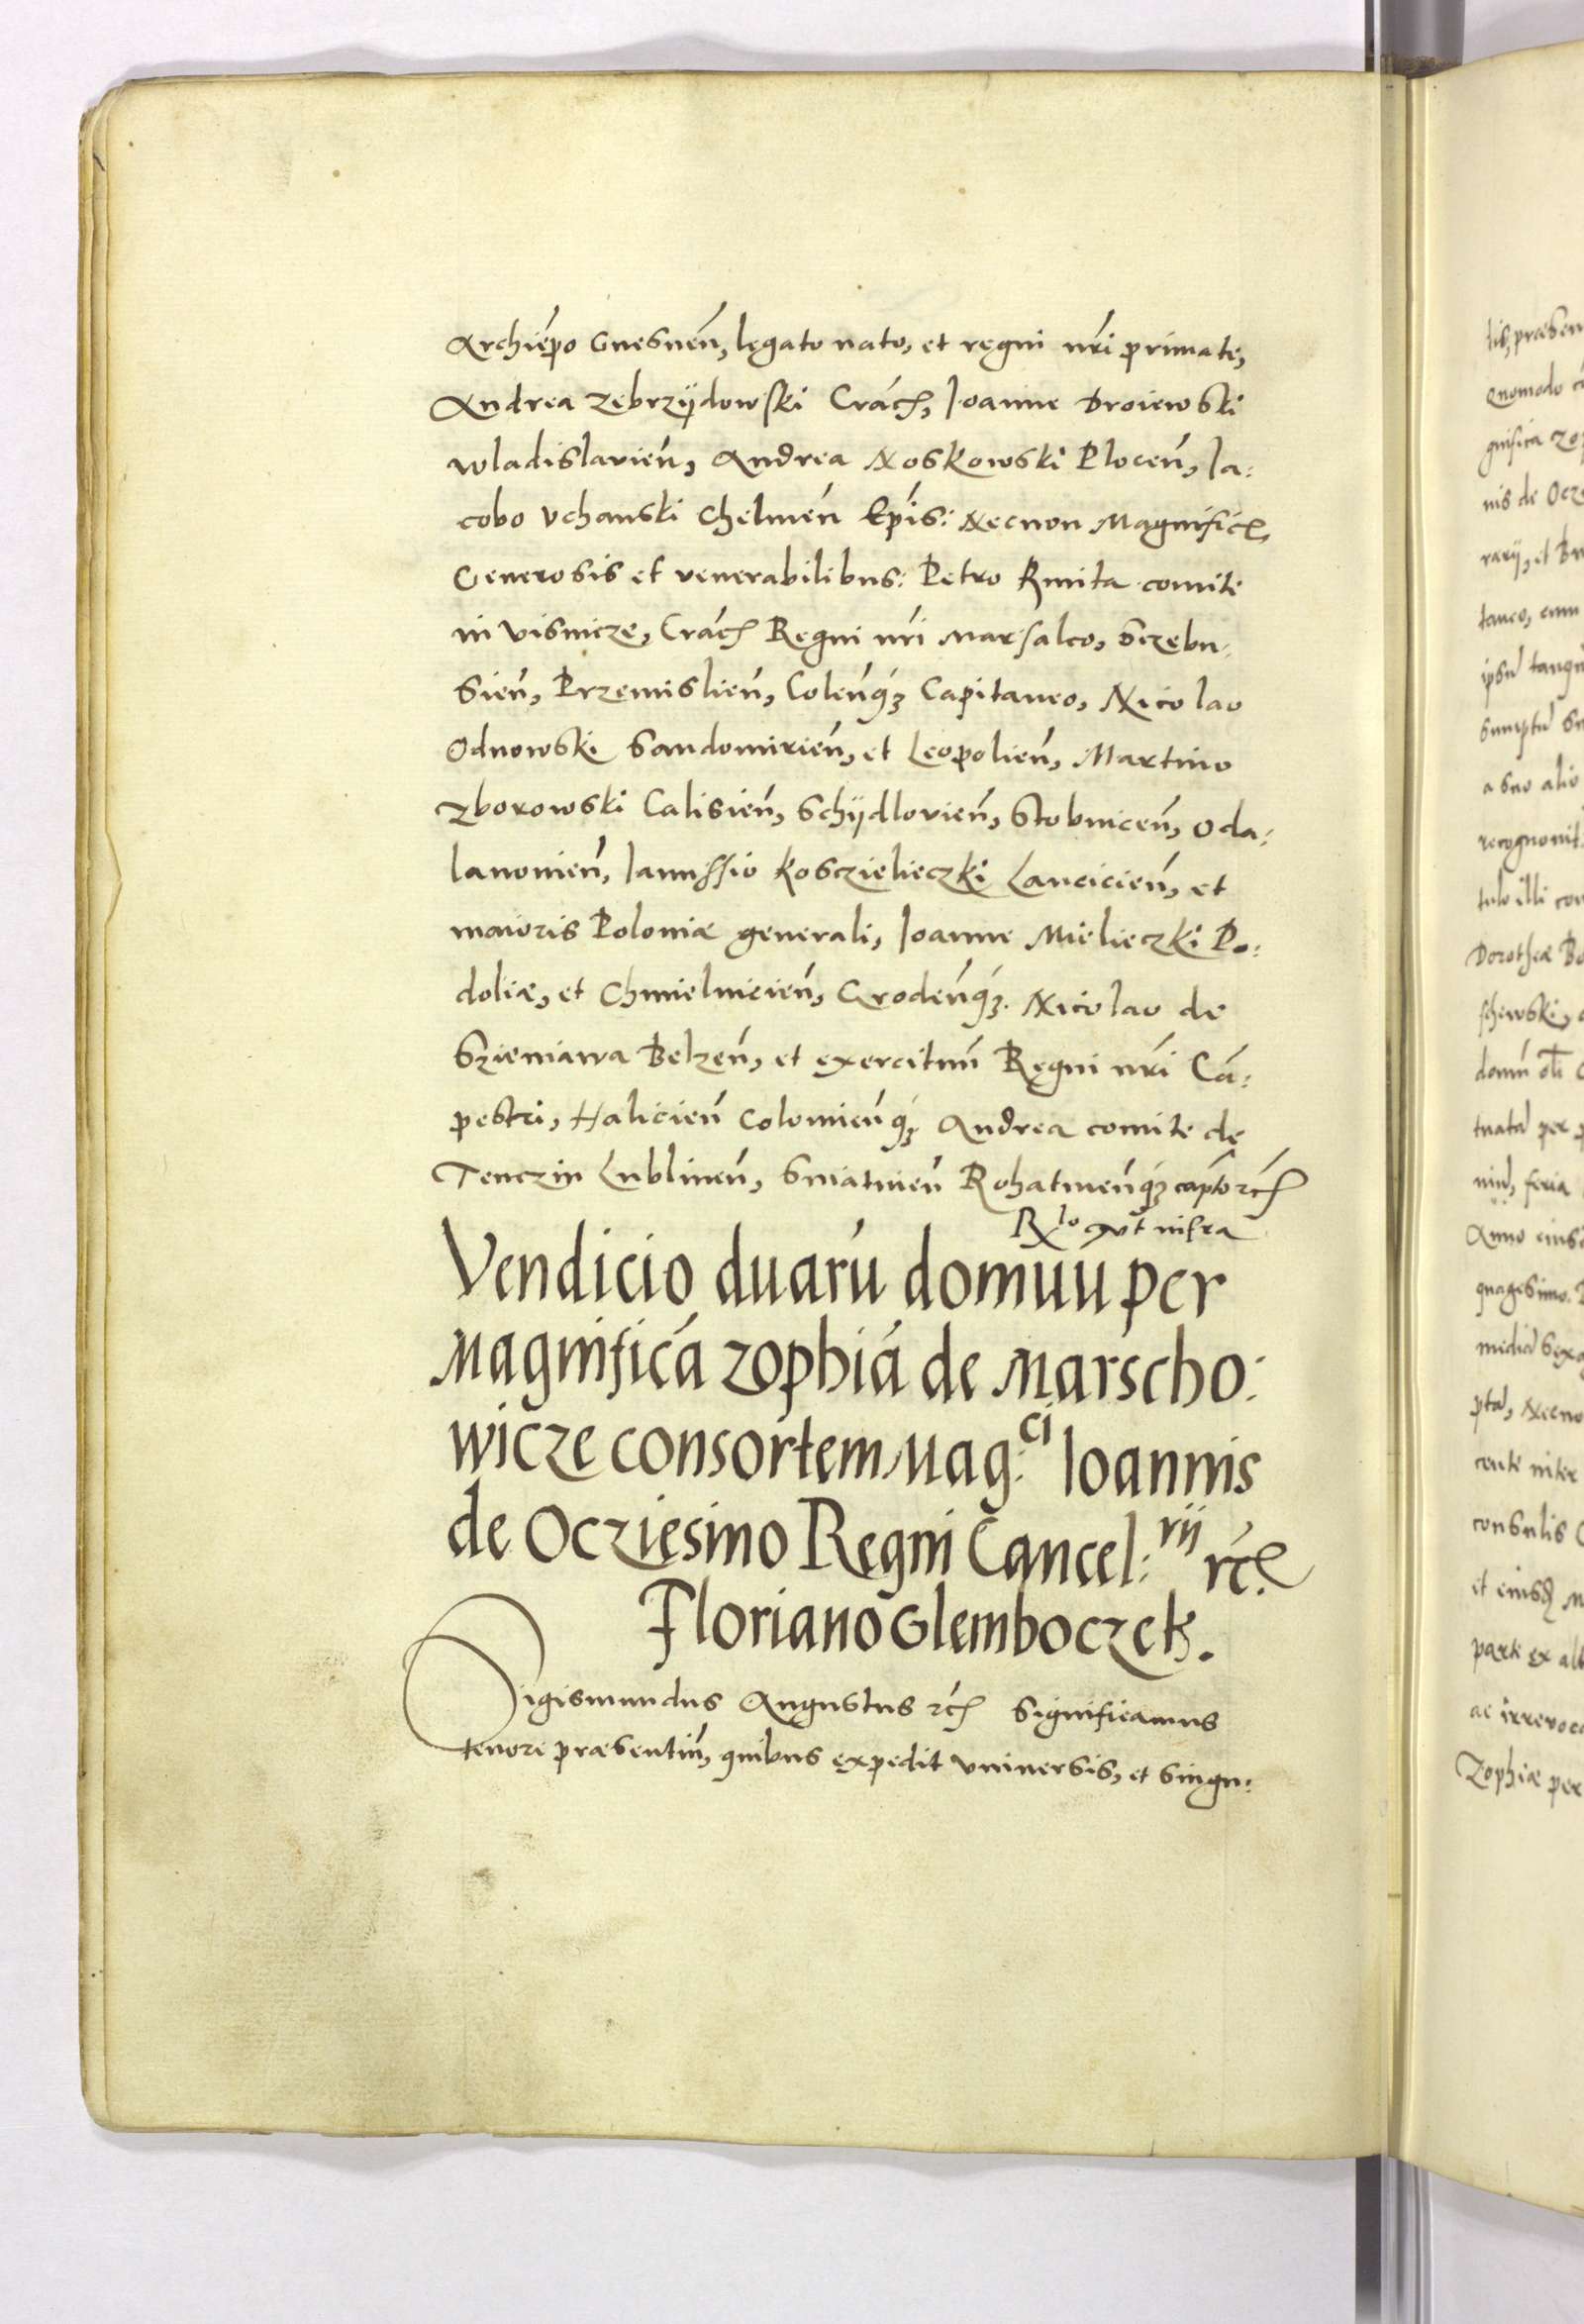 Archiepo Gnesnen̄, legato nato, et regni nr̄i primate,
Andrea Zebrzijdowski Crac̄, Joanne Droiewski
Wladislavien̄, Andrea Noskowski Plocen̄, Ja:
cobo Vchanski Chelmen̄ Epis: Necnon Magnific̄,
Generosis et venerabilibus: Petro Kmita comite
in Visnicze, Crac̄ Regni nr̄i Marsalco, Sczebu-
sien̄, Przemislien̄, Colen̄q₃ Capitaneo, Nicolao
Odnowski Sandomirien̄, et Leopolien̄, Martino
Zborowski Calisien̄, Schijdlovien̄, Stobnicen̄, Oda:
lanovien̄, Janussio Kosczielieczki Lancicien̄, et
maioris Poloniæ generali, Joanne Mielieczki Po:
doliæ, et Chmielnicien̄, Groden̄q₃. Nicolao de
Szieniawa Belzen̄, et exercituu̅ Regni nr̄i Ca̅:
pestri, Halicien̄ Colomien̄q₃ Andrea comite de
Tenczin Lublinen̄, Sniatnien̄ Rohatinen̄q₃ capto rc̄
R^lo ut infra
Vendicio duaru̅ domuu̅ per
Magnifica̅ Zophia̅ de Marscho:
wicze consortem Mag:^ci Joannis
de Ocziesino Regni Cancel:^rij rc̄
Floriano Glemboczek.
Sigismundus Augustus rc̄ Significamus
tenore præsentiu̅, quibus expedit vniversis, et singu:
tib, præsen
Quomodo
gnifica Zop
nis de Ocz
rarij, et
taneo, cum
a suo alio
recognovit
tulo illi con
Dorotheæ Bo
schewski,
tuata̅ per p
feria
Anno eius
quagesimo.
media̅ Sexa
Necno
consulis
parte ex alt
ac irrevoca
Zophiæ per